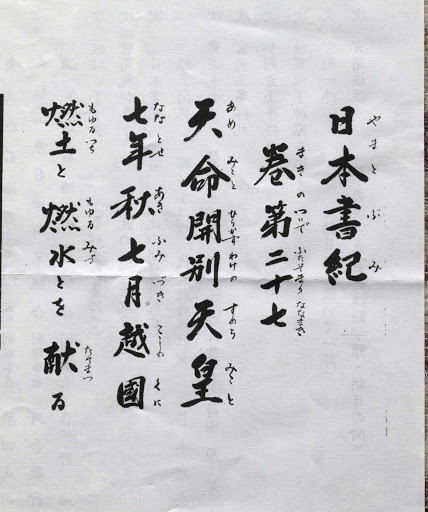 日本書紀
やまとぶみ
巻第二十七
まきのついでふたそまりななまき
天命開別天皇
あめみことひらかすわけのすめらみこと
七年秋七月越國
ななとせあきふみづきこしのくに
燃土と燃水とを献る
もゆるつちもゆるみづたてまつ